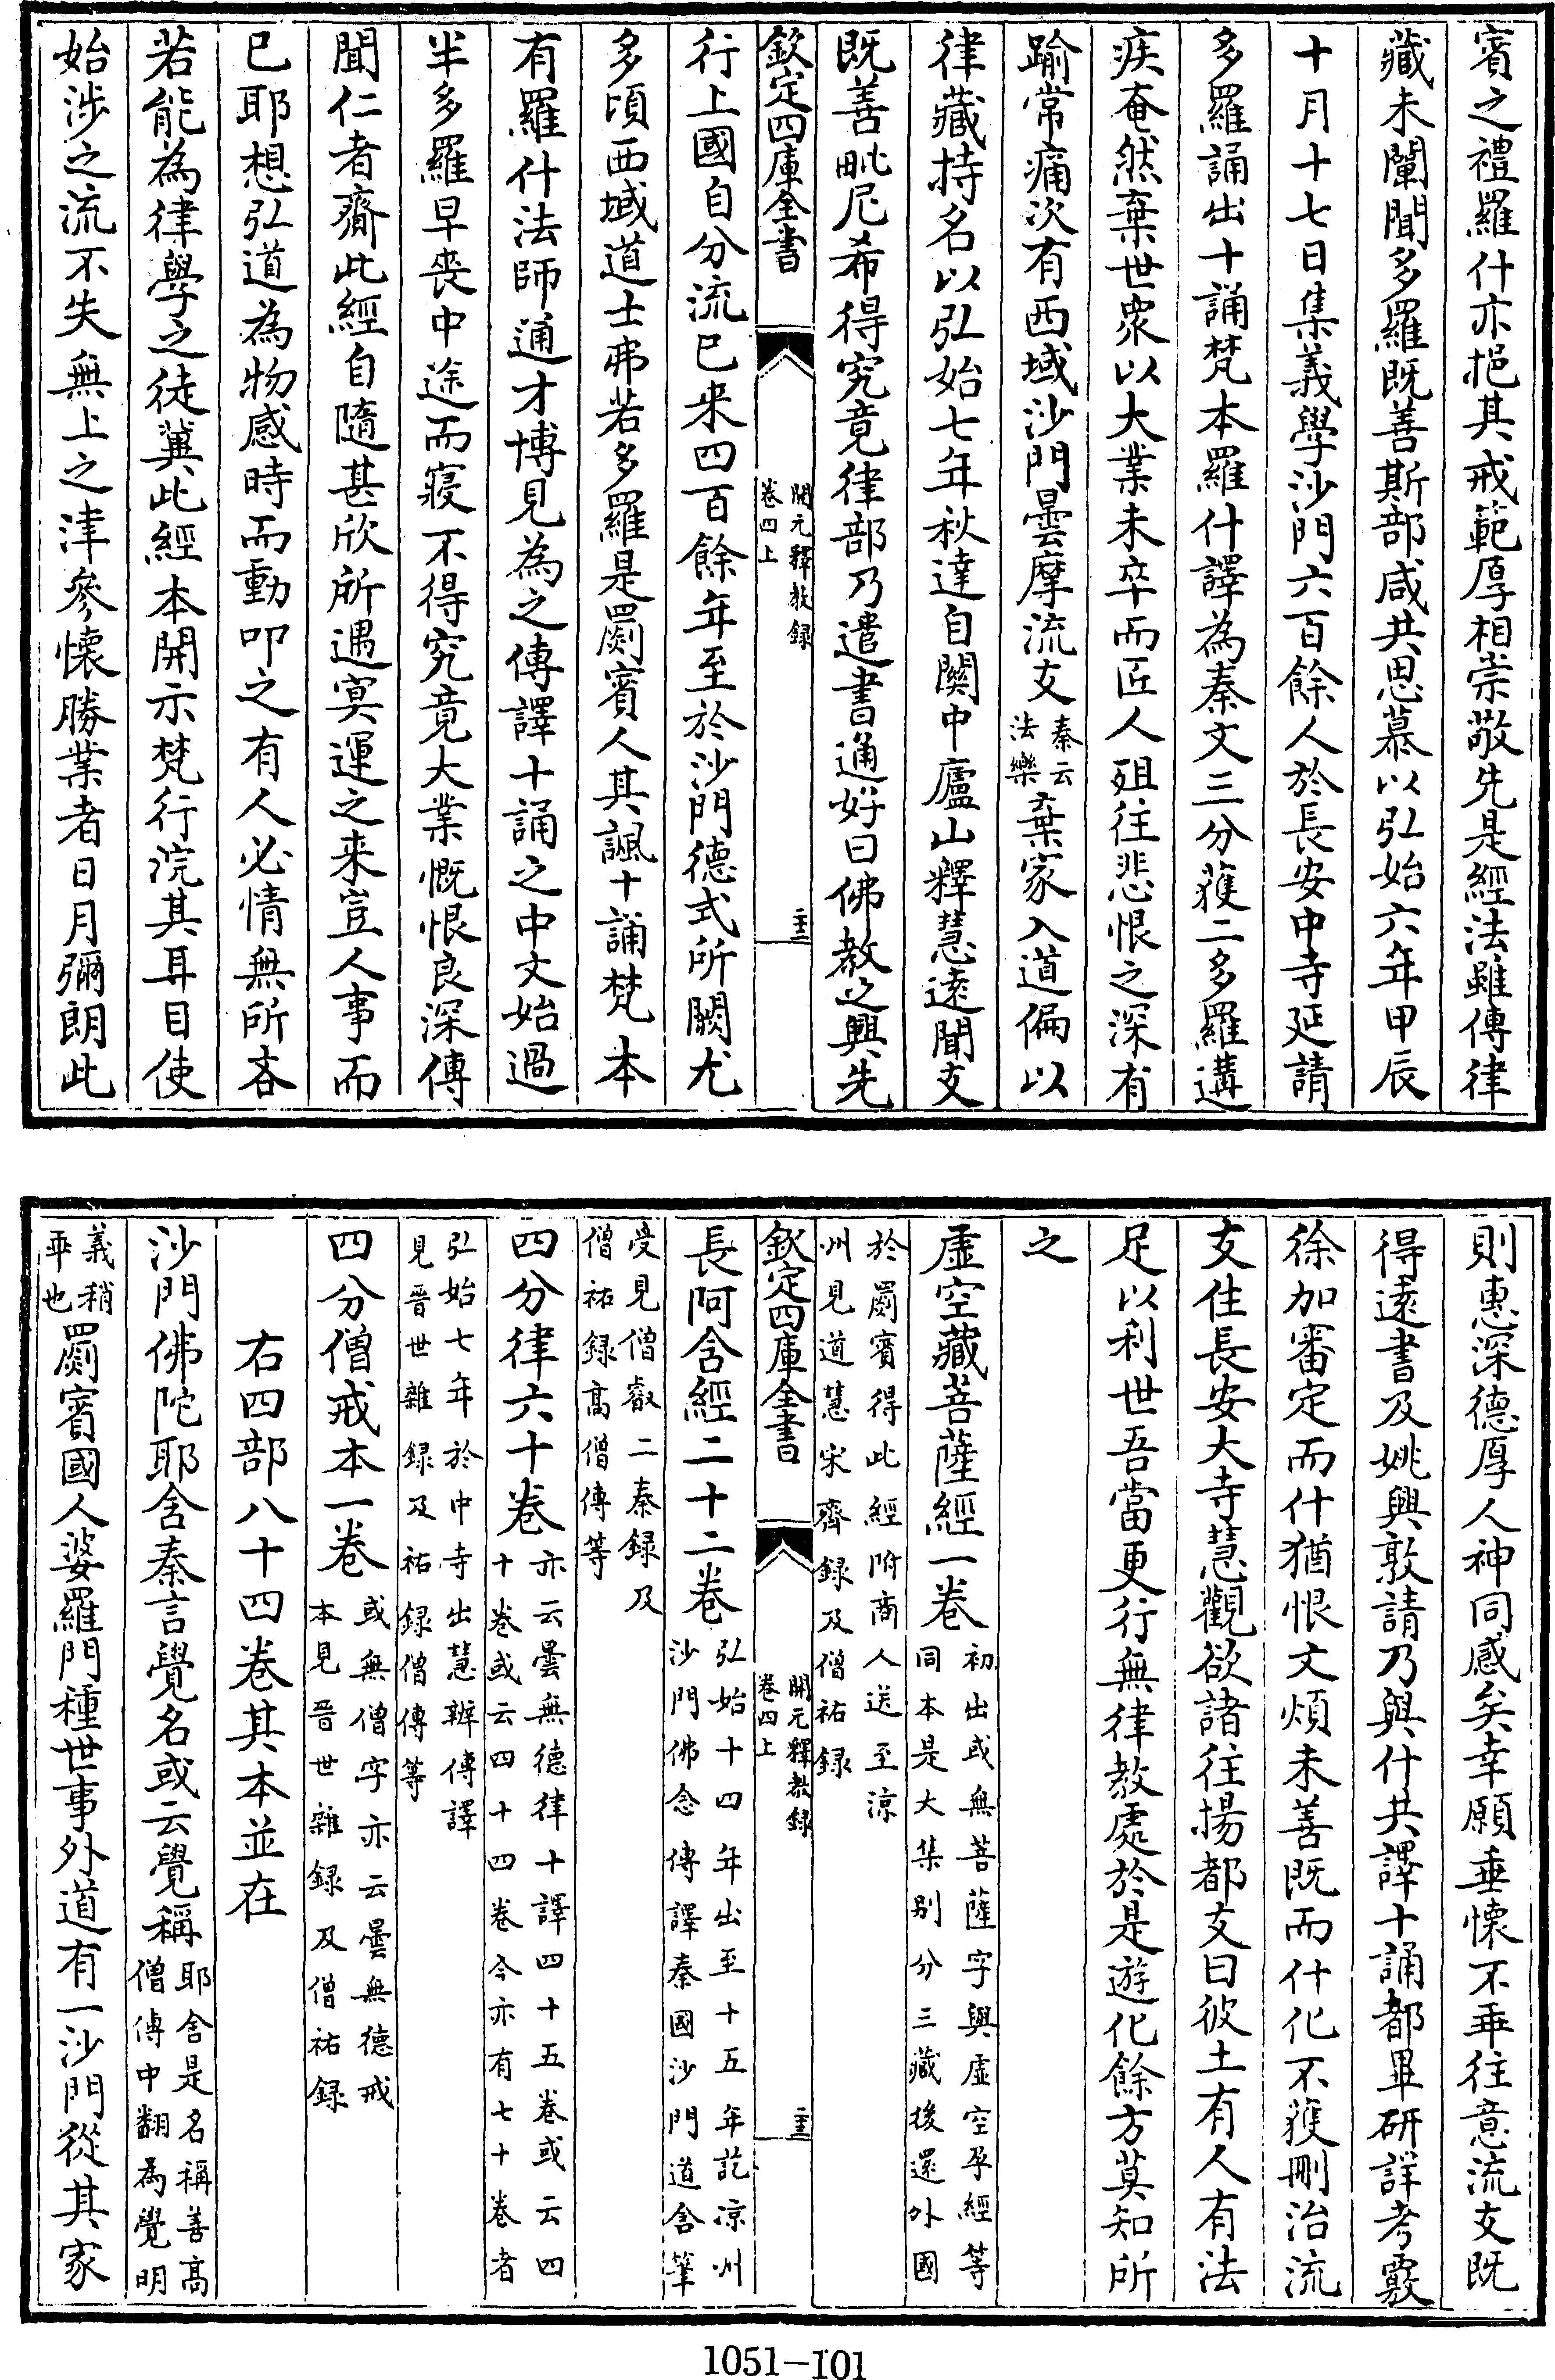 賓之禮羅什亦挹其戒範厚相崇敬先是經法雖傳律
藏未闡聞多羅既善斯部咸共思慕以弘始六年甲辰
十月十七日集義學沙門六百餘人於長安中寺延請
多羅誦出十誦梵本羅什譯為秦文三分獲二多羅遘
疾奄然棄世衆以大業未卒而匠人殂往悲恨之深有
踰常痛次有西域沙門曇摩流支秦云法樂棄家入道偏以
律藏持名以弘始七年秋達自關中廬山釋慧遠聞支
既善毗尼希得究竟律部乃遣書通好曰佛教之興先
欽定四庫全書
開元釋教録
卷四上
主
行上國自分流已来四百餘年至於沙門德式所闕尤
多頃西域道士弗若多羅是罽賓人其諷十誦梵本
有羅什法師通才博見為之傳譯十誦之中文始過
半多羅早喪中途而寢不得究竟大業慨恨良深傳
聞仁者齎此經自隨甚欣所遇冥運之来豈人事而
已耶想弘道為物感時而動叩之有人必情無所吝
若能為律學之徒冀此經本開示梵行浣其耳目使
始涉之流不失無上之津參懷勝業者日月彌朗此
則惠深德厚人神同感矣幸願垂懷不乖往意流支既
得遠書及姚興敦請乃與什共譯十誦都畢研詳考覈
徐加審定而什猶恨文煩未善既而什化不獲刪治流
支住長安大寺慧觀欲諸往揚都支曰彼土有人有法
足以利世吾當更行無律教處於是遊化餘方莫知所
之
虛空藏菩薩經一卷初出或無菩薩字與虛空孕經等同本是大集別分三藏後還外國
於罽賓得此經附商人送至涼州見道慧宋齊録及僧祐録
欽定四庫全書
開元釋教録
卷四上
主
長阿含經二十二卷弘始十四年出至十五年訖涼州沙門佛念傳譯秦國沙門道含筆
受見僧叡二秦録及僧祐録高僧傳等
四分律六十卷亦云曇無德律十譯四十五卷或云四十卷或云四十四卷今亦有七十卷者
弘始七年於中寺出慧辯傳譯見晉世雜録及祐録僧傳等
四分僧戒本一卷或無僧字亦云曇無德戒本見晉世雜録及僧祐録
右四部八十四卷其本並在
沙門佛陀耶舍秦言覺名或云覺稱耶舍是名稱善高僧傳中翻為覺明
義稍乖也罽賓國人婆羅門種世事外道有一沙門從其家
1051-101